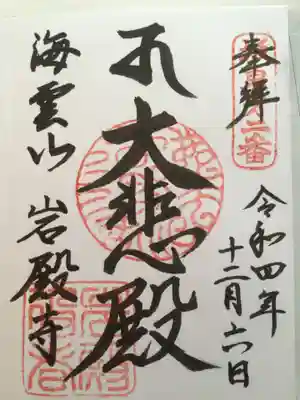 奉拝
二番
令和四年
十二月六日
大悲殿
海雲山 岩殿寺